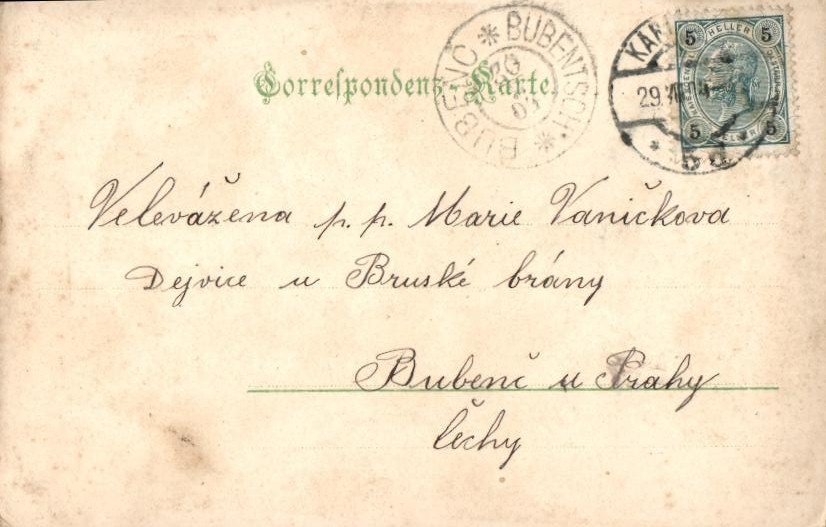 Correspondenz-Karte.
BUBENEC * BUBENTSCH *
30
03
KAR
29.VII.
5 HELLER 5
5 5
Velevážena p. p. Marie Vaničkova
Dejvice u Bruské brány
Bubenč u Prahy
čechy